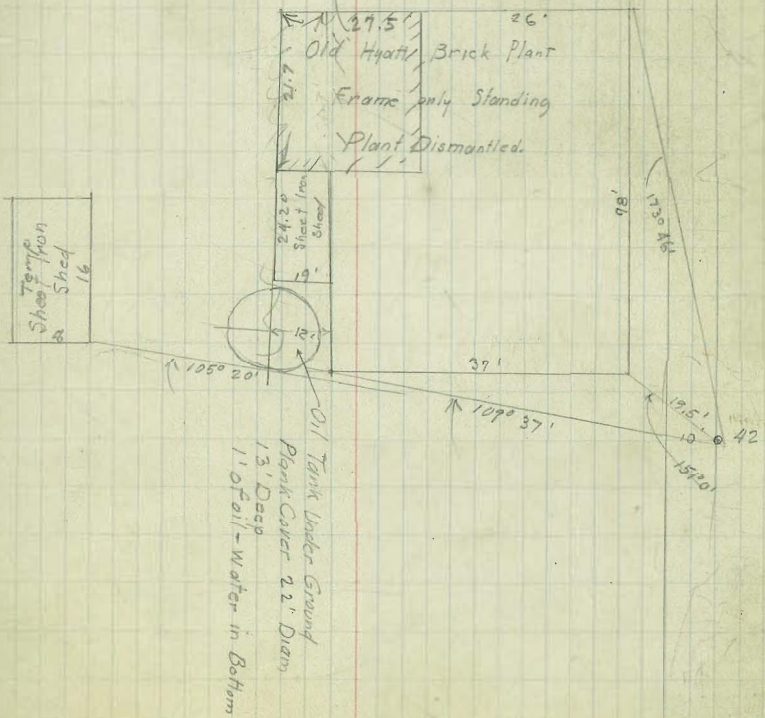 27.5'
26'
Old Hyatt Brick Plant
Frame only Standing
Plant Dismantled.
24.20
Sheet Iron
Shed
19'
98'
173° 46'
Temp
Sheet Iron
Shed
16
12'
37'
105° 20'
109° 37'
19.5'
42
Oil Tank Under Ground
Plank Cover 22' Diam
13' Deep
1' of oil - Water in Bottom